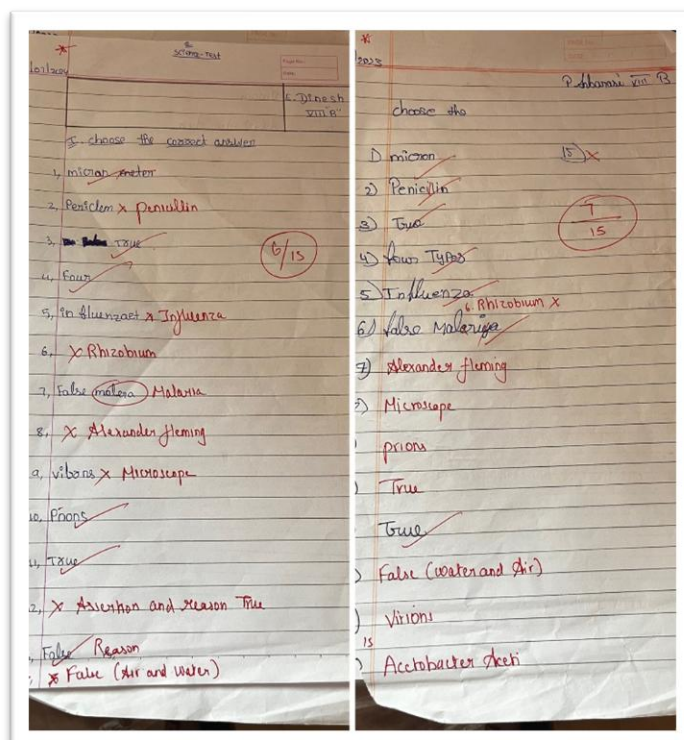 Science-Test
Page No.:
Date:
E. Dinesh
VIII "B"
I. choose the correct answer
1, micron meter
2, Peniclem x Penicillin
3, True
6/15
4, Four
5, in fluenzaet x Influenza
6, x Rhizobium
7, False matera Malaria
8, x Alexander fleming
9, vibons x Microscope
10, Prions
11, True
12, x Assertion and reason True
False Reason
x False (Air and water)
2023
VIII B
choose the
1) micron
15) x
2) Penicillin
3) True
7/15
4) four Types
5) Influenza
6. Rhizobium x
6) false Malariya
7) Alexander fleming
Microscope
prions
True
True
False (water and Air)
Virions
15
Acetobacter Aceti